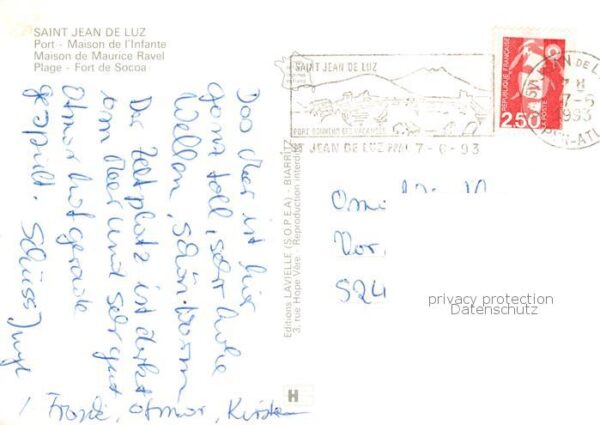 SAINT JEAN DE LUZ
Port - Maison de l'Infante
Maison de Maurice Ravel
Plage - Fort de Socoa
Das Meer ist hier
ganz toll, sehr hohe
Wellen, schön warm
Der Zeltplatz ist direkt
am Meer und sehr gut
Otmar hat gerade
gespielt. Tschüss
Otmar, Kirsten
Editions LAVIELLE (S.O.P.E.A) - BIARRITZ
3, rue Hope Vère. Reproduction interdite
H
SAINT JEAN DE LUZ
PORT
DES VACANCES
ST JEAN DE LUZ PPAL 7-6-93
REPUBLIQUE FRANÇAISE
LA POSTE
2,50
7-6
1993
Omi
Dor.
524
privacy protection
Datenschutz